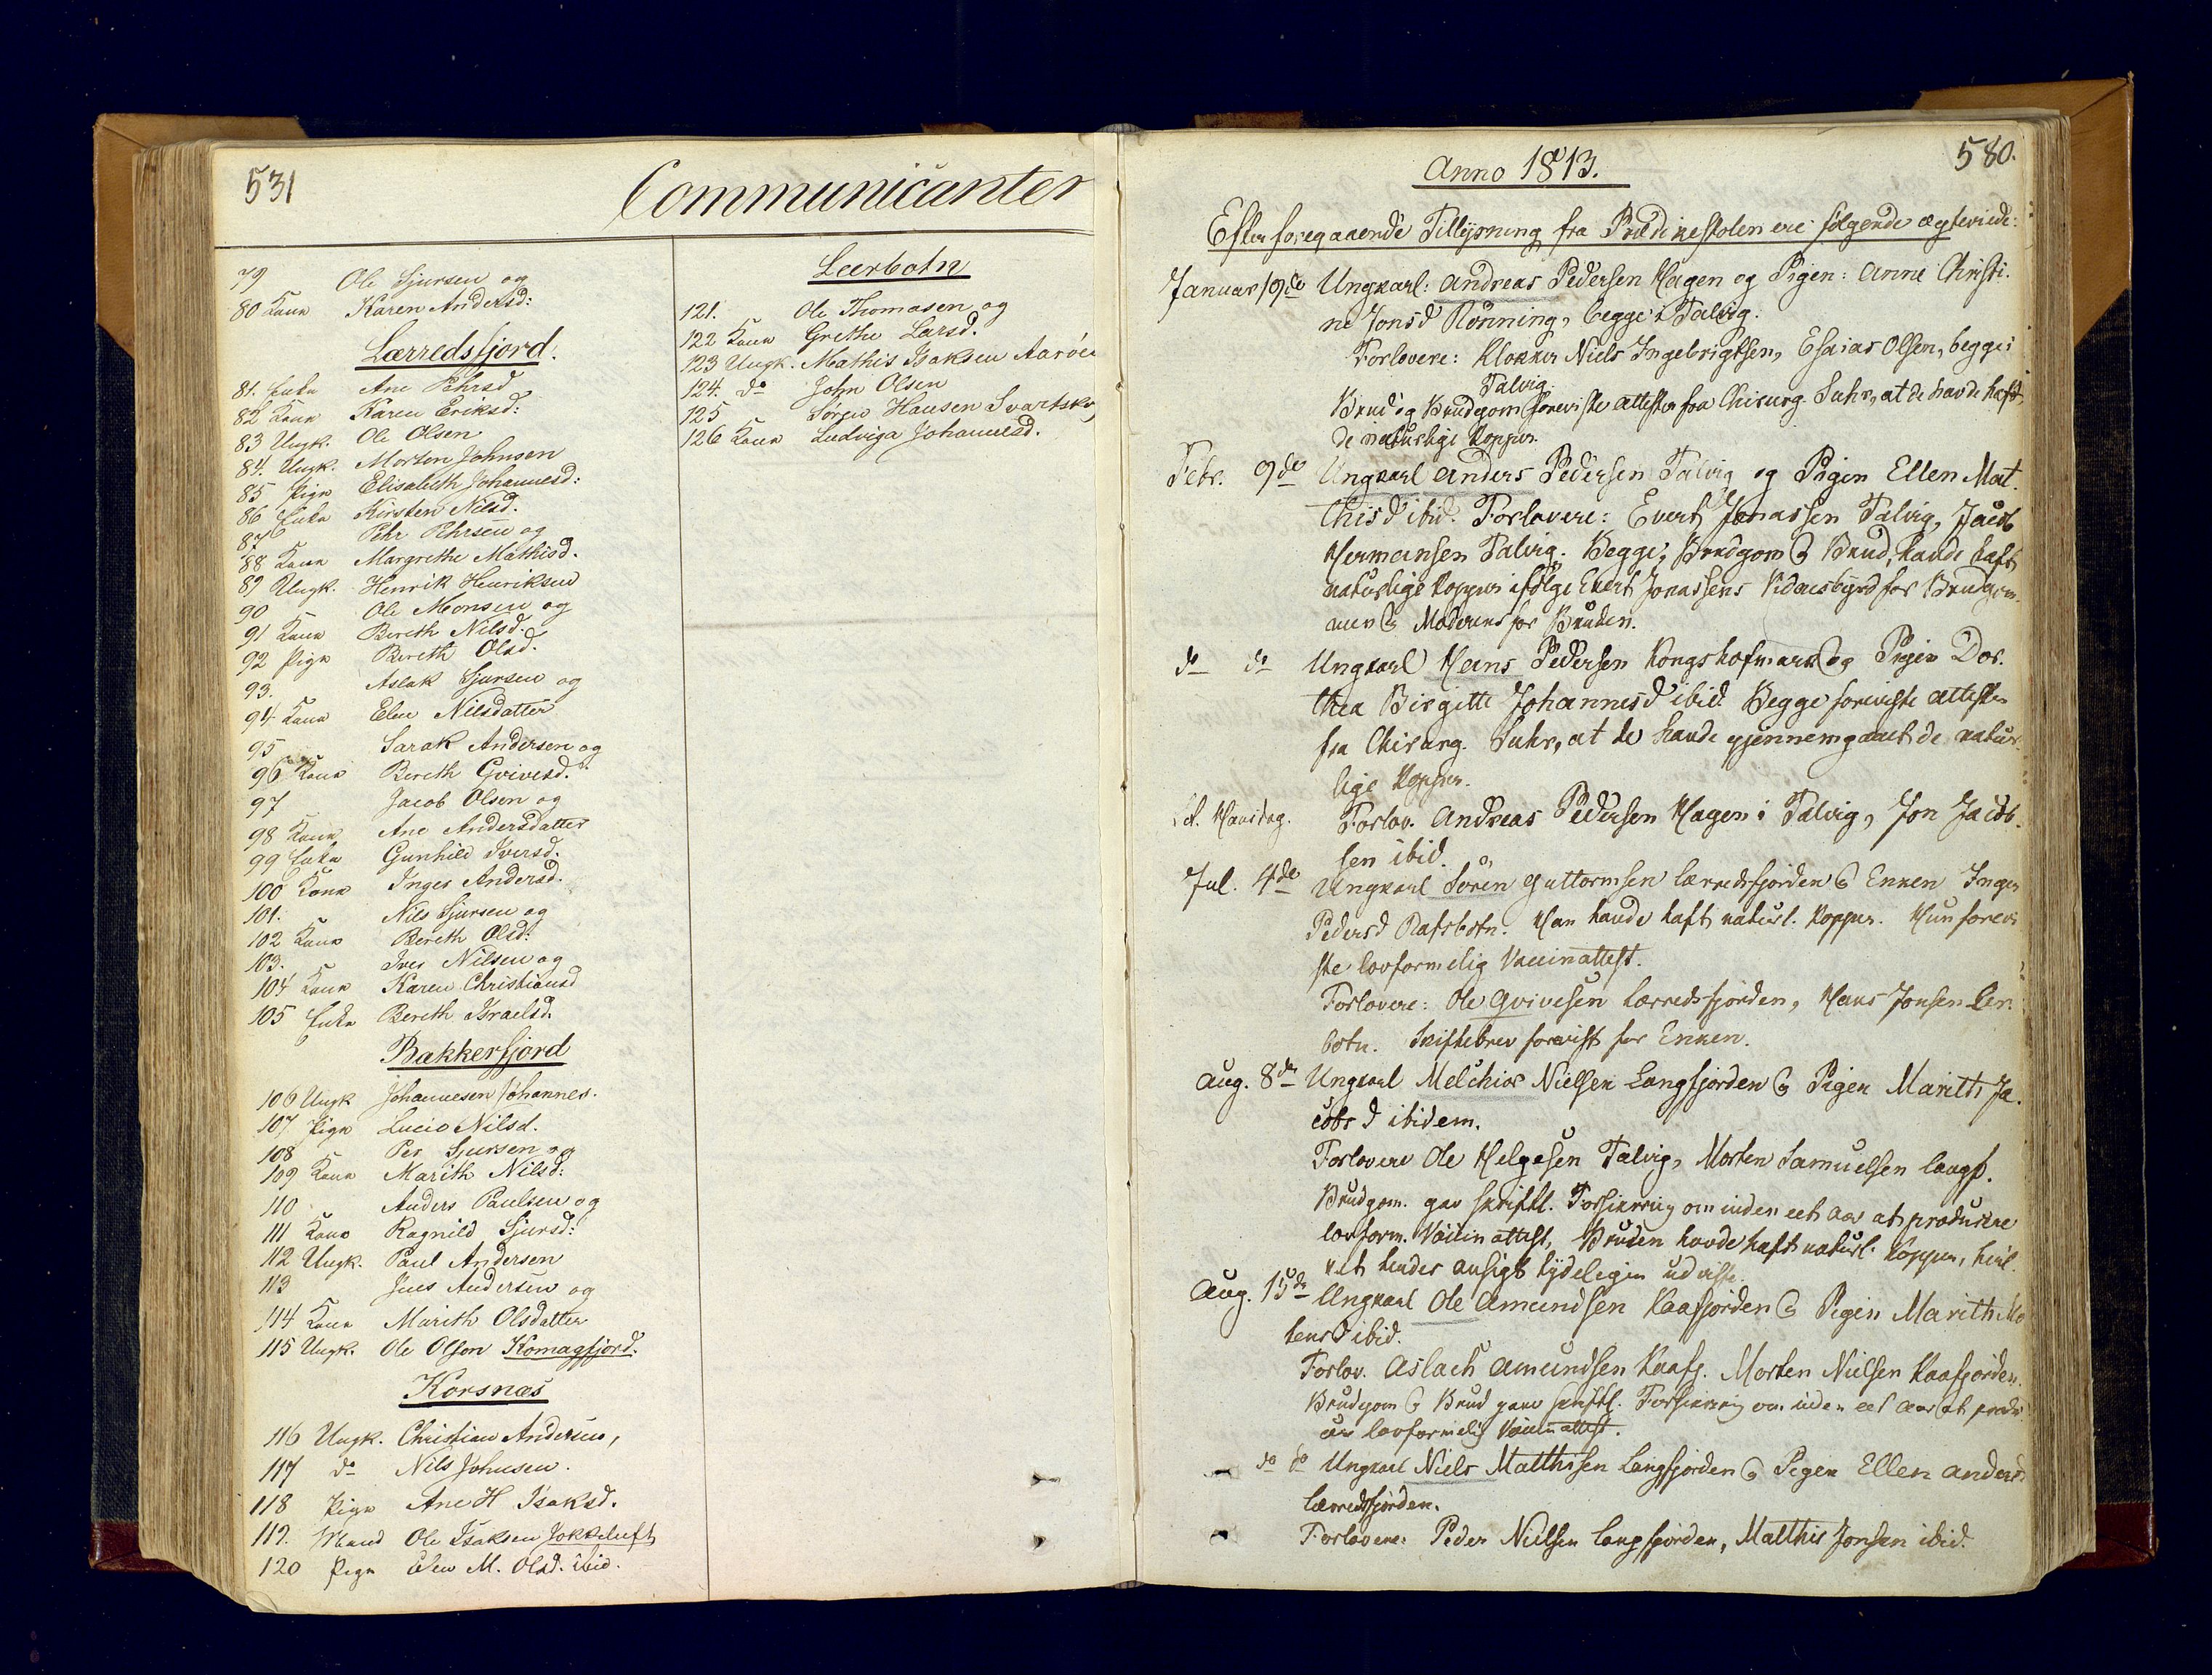 531
Communicanter
79 Ole Sjursen og
80 Kone Karen Andersd:
Lærredsfjord.
81. Enke Ane Pehrsd
82 Kone Karen Eriksd:
83 Ungk. Ole Olsen
84. Ungk. Morten Johnsen
85 Pige Elisabeth Johannesd:
86 Enke Kirsten Nilsd.
87 Pehr Pehrsen og
88 Kone Margrethe Mathisd.
89 Ungk. Henrik Henriksen
90 Ole Monsen og
91 Kone Bereth Nilsd.
92 Pige Bereth Olsd.
93. Aslak Sjursen og
94. Kone Elen Nilsdatter
95 Sarak Andersen og
96 Kone Bereth Gvivesd.
97 Jacob Olsen og
98 Kone Ane Andersdatter
99 Enke Gunhild Iversd.
100 Kone Inger Andersd.
101. Nils Sjursen og
102 Kone Bereth Olsd:
103. Iver Nilsen og
104 Kone Karen Christiansd
105 Enke Bereth Israelsd.
Bakkerfjord
106 Ungk Johannesen Johannes.
107 Pige Lucie Nilsd.
108 Per Sjursen og
109 Kone Marith Nilsd:
110 Anders Paulsen og
111 Kone Ragnild Sjursd:
112 Ungk. Paul Andersen
113 Jens Andersen og
114 Kone Marith Olsdatter
115 Ungk. Ole Olsen Komagfjord.
Korsnæs
116 Ungk. Christian Andersen,
117 do Nils Johnsen.
118 Pige Ane H Isaksd.
119. Mand Ole Isaksen Jokkeluft
120 Pige Elen M. Olsd. ibid.
Leerbotn
121. Ole Thomasen og
122 Kone Grethe Larsd.
123 Ungk. Mathis Isaksen Aarøe
124. do John Olsen
125 Søren Hansen Svartsk
126 Kone Ludviga Johannesd.
580.
Anno 1813.
Efter foregaaende Tillysning fra Prædikestolen ere følgende ægteviede:
Januar 19de Ungkarl: Andreas Pedersen Hagen og Pigen: Anne Christi.
ne Jonsd Rönning, begge i Talvig.
Forlovere: Klokker Niels Ingebrigtsen, Esaias Olsen, begge i
Talvig.
Brud og Brudgom foreviste attester fra Chirurg Suhr, at de havde haft
de naturlige Kopper.
Febr. 9de Ungkarl Anders Pedersen Talvig og Pigen Ellen Mat.
thisd ibid. Forlovere: Evert Jonassen Talvig, Jacob
Hermansen Talvig. Begge, Brudgom & Brud, havde haft
naturlige Kopper ifølge Evert Jonassens Vidnesbyrd for Brudgom.
men & Moderens for Bruden.
do do Ungkarl Hans Pedersen Kongshofmark og Pigen Dor.
thea Birgitte Johannesd ibid. Begge foreviste attester
fra Chirurg. Suhr, at de havde gjennemgaaet de natur.
lige Kopper.
Forlov. Andreas Pedersen Hagen i Talvig, Jon Jacob.
sen ibid.
Jul. 4de Ungkarl Sören Guttormsen Lærredsfjorden & Enken Inger
Pedersd Rafsbotn. Han havde haft naturl. Kopper. Hun forevi
ste lovformelig Vaccinattest.
Forlovere: Ole Gvivesen Lærredsfjorden, Hans Jonsen Ler.
botn. Skiftebrev forevist for Enken.
Aug. 8de Ungkarl Melchior Nielsen Langfjorden & Pigen Marith Ja.
cobsd ibidem.
Forlovere Ole Helgesen Talvig, Morten Samuelsen Langf.
Brudgom. gav skriftl. Forsikring om inden eet Aar at producere
lovform. Vaccinattest, Bruden havde haft naturl. Kopper, hvil.
ket hendes ansigt tydeligen udviste.
Aug. 15de Ungkarl Ole Amundsen Kaafjorden & Pigen Marith Mo
tensd ibid.
Forlov. Aslach Amundsen Kaafj. Morten Nielsen Kaafjorden.
Brudgom & Brud gave skriftl. Forsikring om inden eet Aar at produ
cere lovformelig Vaccinattest.
do do Ungkarl Niels Matthisen Langfjorden & Pigen Ellen Andersd
Lærredsfjorden.
Forlovere: Peder Nielsen Langfjorden, Matthis Jonsen ibid.